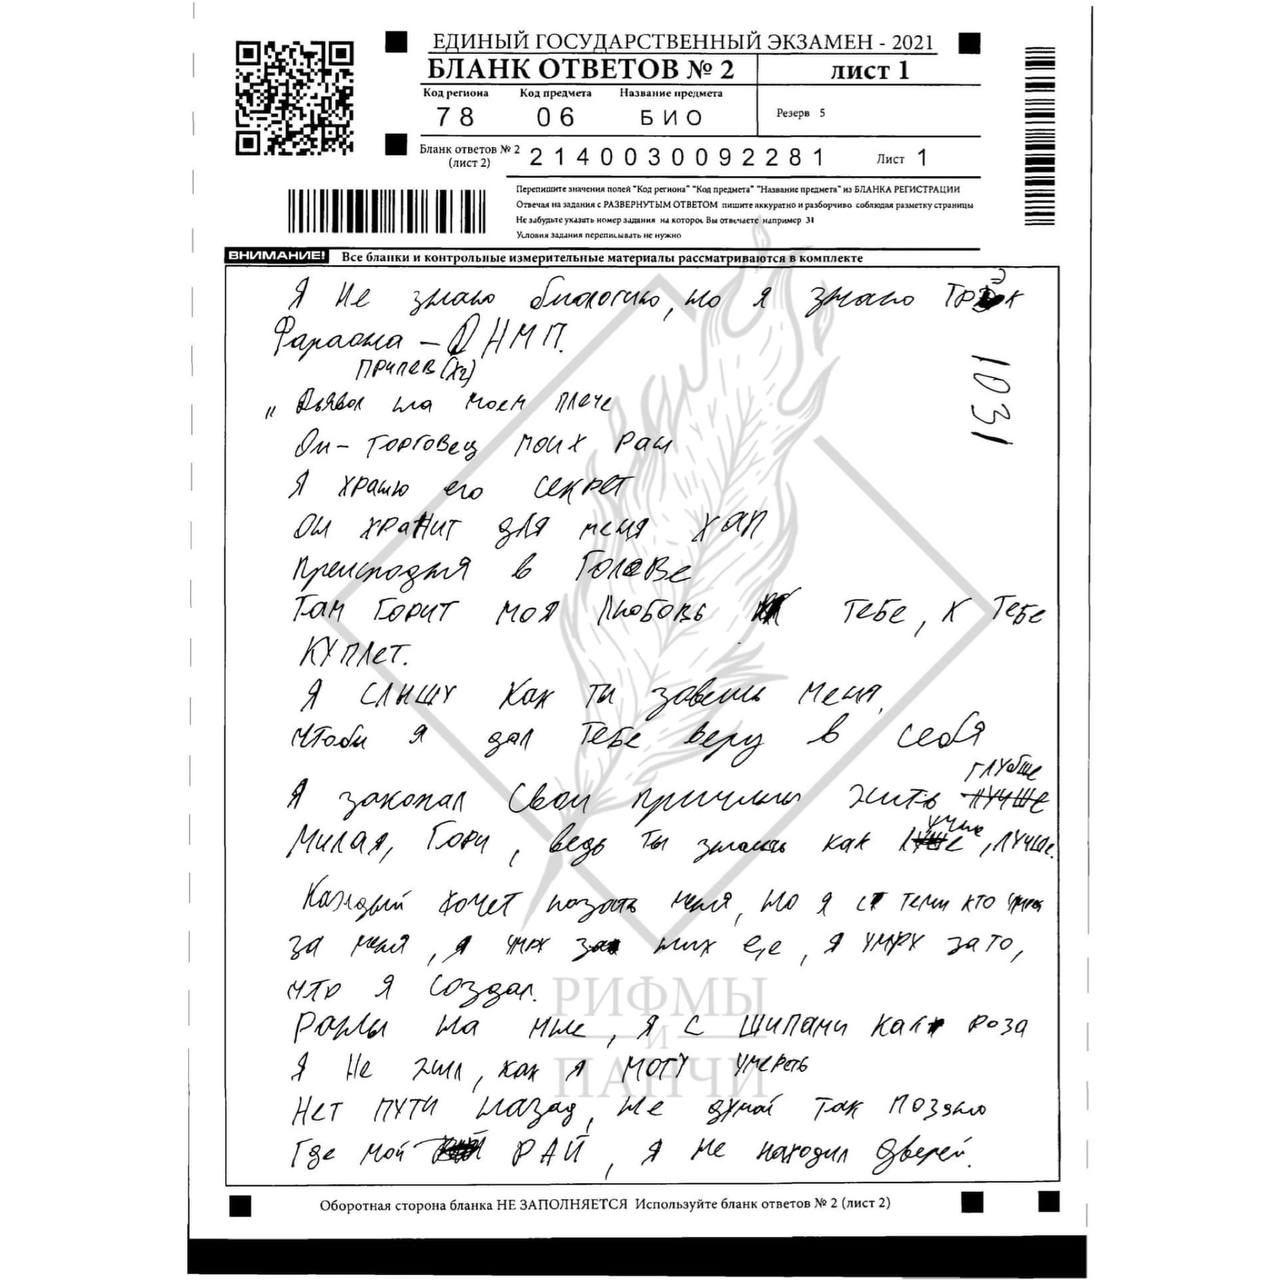 ЕДИНЫЙ ГОСУДАРСТВЕННЫЙ ЭКЗАМЕН - 2021
БЛАНК ОТВЕТОВ № 2 лист 1
Код региона Код предмета Название предмета
78 06 БИО Резерв 5
Бланк ответов № 2 (лист 2) 2140030092281 Лист 1
Перепишите значения полей "Код региона" "Код предмета" "Название предмета" из БЛАНКА РЕГИСТРАЦИИ
Отвечая на задания с РАЗВЕРНУТЫМ ОТВЕТОМ пишите аккуратно и разборчиво соблюдая разметку страницы
Не забудьте указать номер задания на которое Вы отвечаете например 31
Условия задания переписывать не нужно
ВНИМАНИЕ! Все бланки и контрольные измерительные материалы рассматриваются в комплекте
Я не знаю биологию, но я знаю трек
Фараона - ДНМП.
1031
ПРИПЕВ (х2)
„ Дьявол на моем плече
Он - торговец моих ран
Я храню его секрет
Он хранит для меня хап
Преисподня в голове
Там горит моя любовь к тебе, к тебе
КУПЛЕТ.
Я слышу как ты зовешь меня,
чтобы я дал тебе веру в себя
Я закопал свои причины жить глубже
Милая, гори, ведь ты знаешь как лучше, лучше.
Каждый хочет меня, но я с теми кто
за меня, я умру за них, я умру за то,
что я создал.
Раны на мне, я с шипами как роза
Я не жил, как я могу умереть
Нет пути назад, не думай так поздно
Где мой РАЙ, я не находил дверей.
РИФМЫ
И
ПАНЧИ
Оборотная сторона бланка НЕ ЗАПОЛНЯЕТСЯ Используйте бланк ответов № 2 (лист 2)